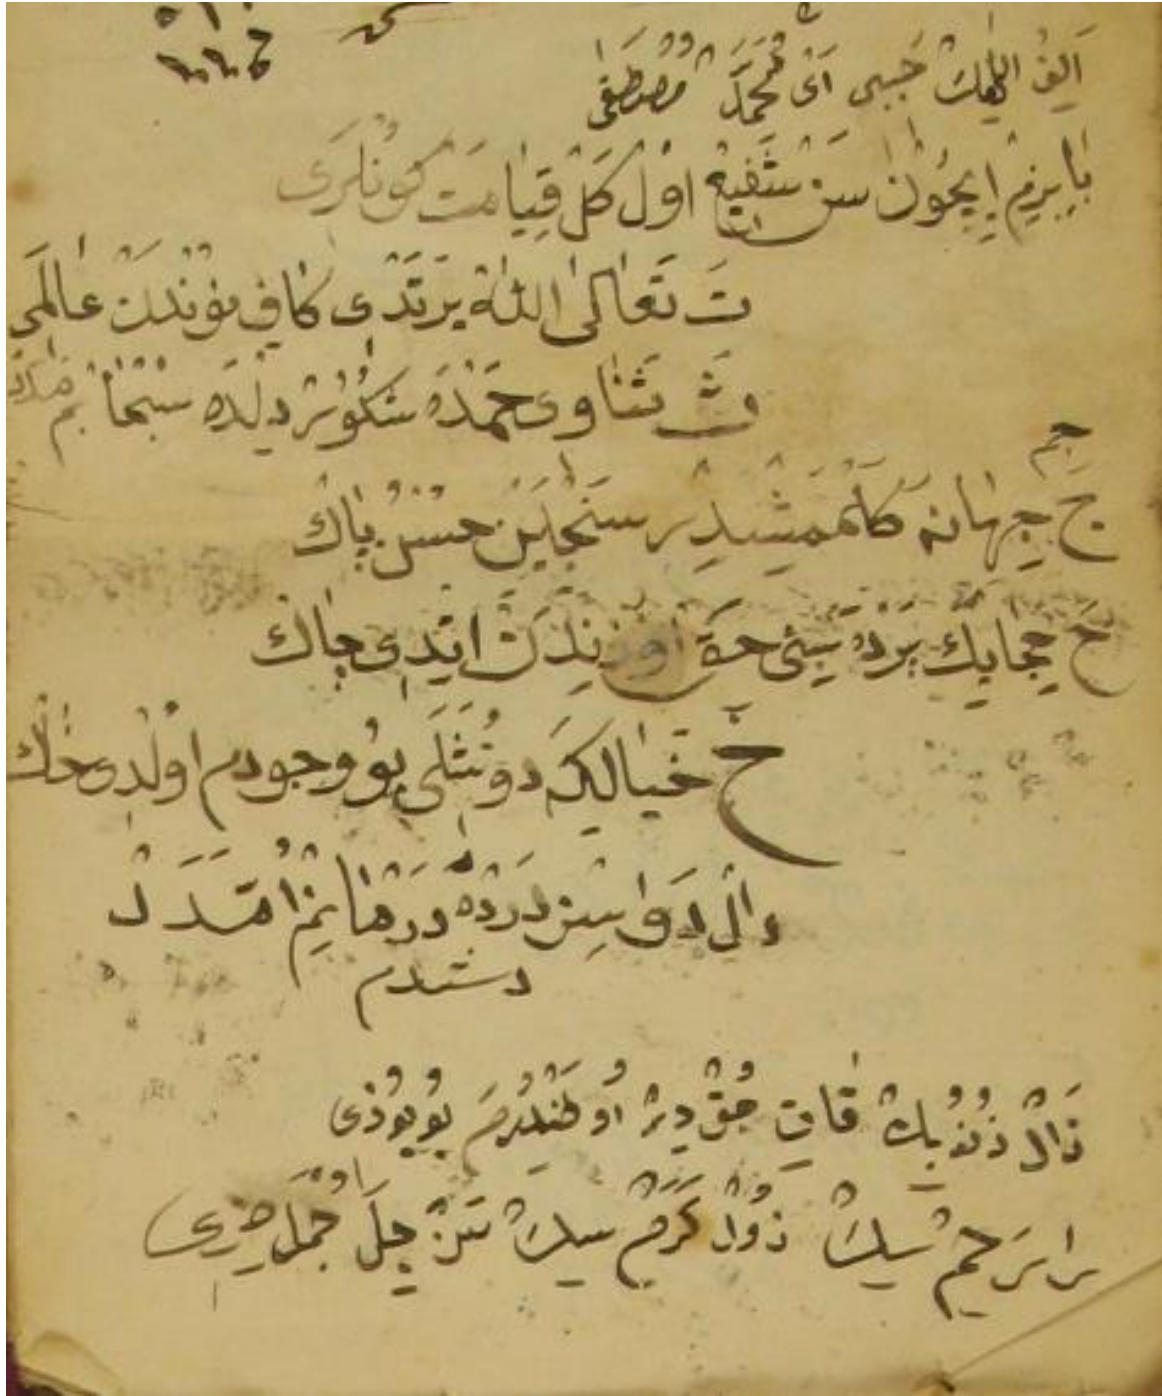 اَلِفْ اللّٰهِكْ حَبِيبِى اَىْ مُحَمَّدْ مُصْطَفٰى
بَا بِزِمْ اِيچُونْ سَنْ شَفِيعْ اوْلْ كَلْ قِيَامَتْ كُونْلَرِى
تَ تَعَالَى اللّٰهْ يَرَتْدِى كَافِ نُونْدَنْ عَالَمِى
ثَ ثَنَاوِ حَمْدَه شُكُرْ دِلْدَه
جيم
جَ جِهَانَه كَلْمَمِشْدِرْ سَنْجِلَيِنْ حُسْنُ پَاكْ
حَ حِجَابِكْ پَرْدَه سِنِى حَقْ اتِدِى چَاكْ
خَ خَيَالِكَه دُوشَلِى بُو وُجُودِمْ اوُلْدِى خَاكْ
دَالْ دَوَاسِزْ دَرْدَه دَرْمَانِمْ مَدَدْ
دشدم
ذَالْ ذُنُوبِكْ قَاتِ چُقْدِرْ اُوطَنِدُرْمَ بُو يُوزِى
رَا رَحِيمْ سِكْ ذُولْ كَرَمْ سِكْ سَنْ جُمْلَ مِزِى